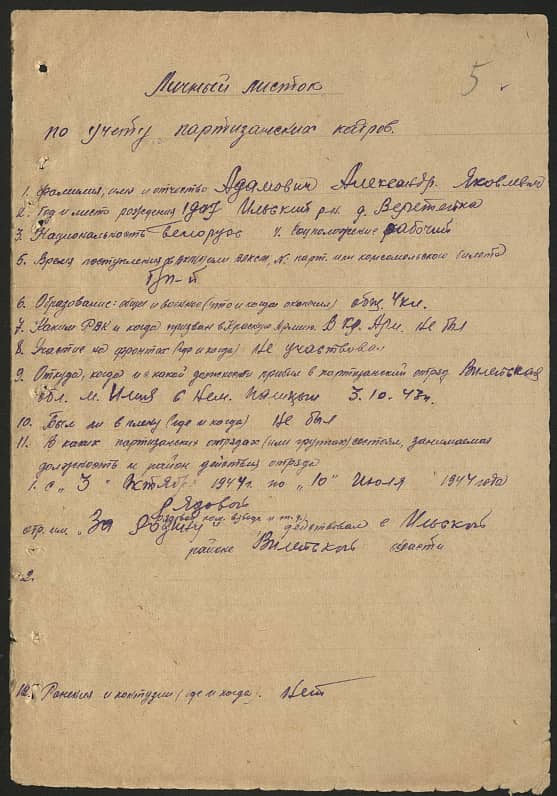 5
Личный листок
по учету партизанских кадров.
1. Фамилия, имя и отчество Адамович Александр. Яковлевич
2. Год и место рождения 1907 Ильский р-н. д. Веретейка
3. Национальность белорус 4. Соцположение рабочий
5. Время поступления в № парт. или комсомольского билета
б/п-й
6. Образование: общее и военное (что и когда окончил) общ. 4 кл.
7. Каким РВК и когда призван в Красную Армию. В Кр. Арм. не был
8. Участие на фронтах (где и когда). Не участвовал
9. Откуда, когда и в какой должности прибыл в партизанский отряд Вилейская
обл. м. Илия с нем. 3.10.43 г.
10. Был ли в плену (где и когда) не был
11. В каких партизанских отрядах (или группах) состоял, занимаемая
должность и район действия отряда
1. с "3" октября 1944 г. по "10" июля 1944 года
Рядовой
(рядовой, ком. взвода и т.д.)
отр. им. "За Родину" действовал в Ильской
районе Вилейской области
2.
12. Ранения и контузии (где и когда). Нет